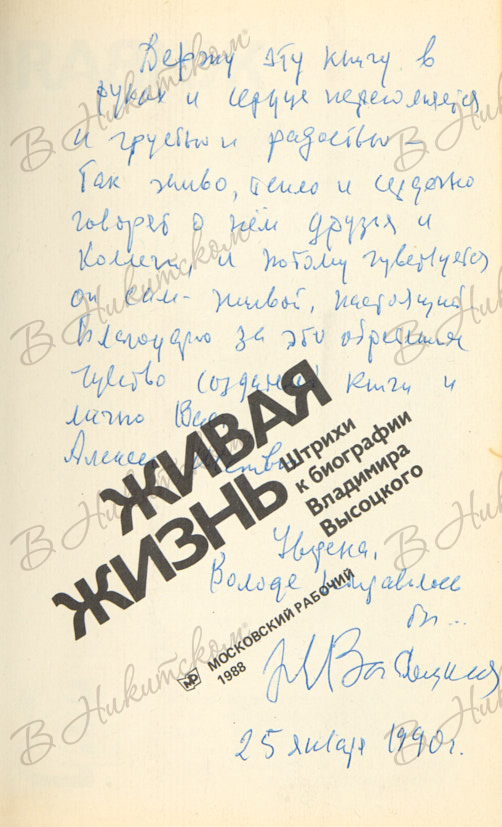 Держу эту книгу в
руках и сердце переполняется
и грустью и радостью –
Так живо, тепло и сердечно
говорят о нём друзья и
коллеги, и потому чувствуется
он сам - живой, настоящий
Благодарю за это обретение
чувство создателей книги и
лично Вас
Алексей
ЖИВАЯ
ЖИЗНЬ
Штрихи
к биографии
Владимира
Высоцкого
Уверена,
Володе понравилось
бы...
МОСКОВСКИЙ РАБОЧИЙ
1988
25 января 1990г.
В Никитском